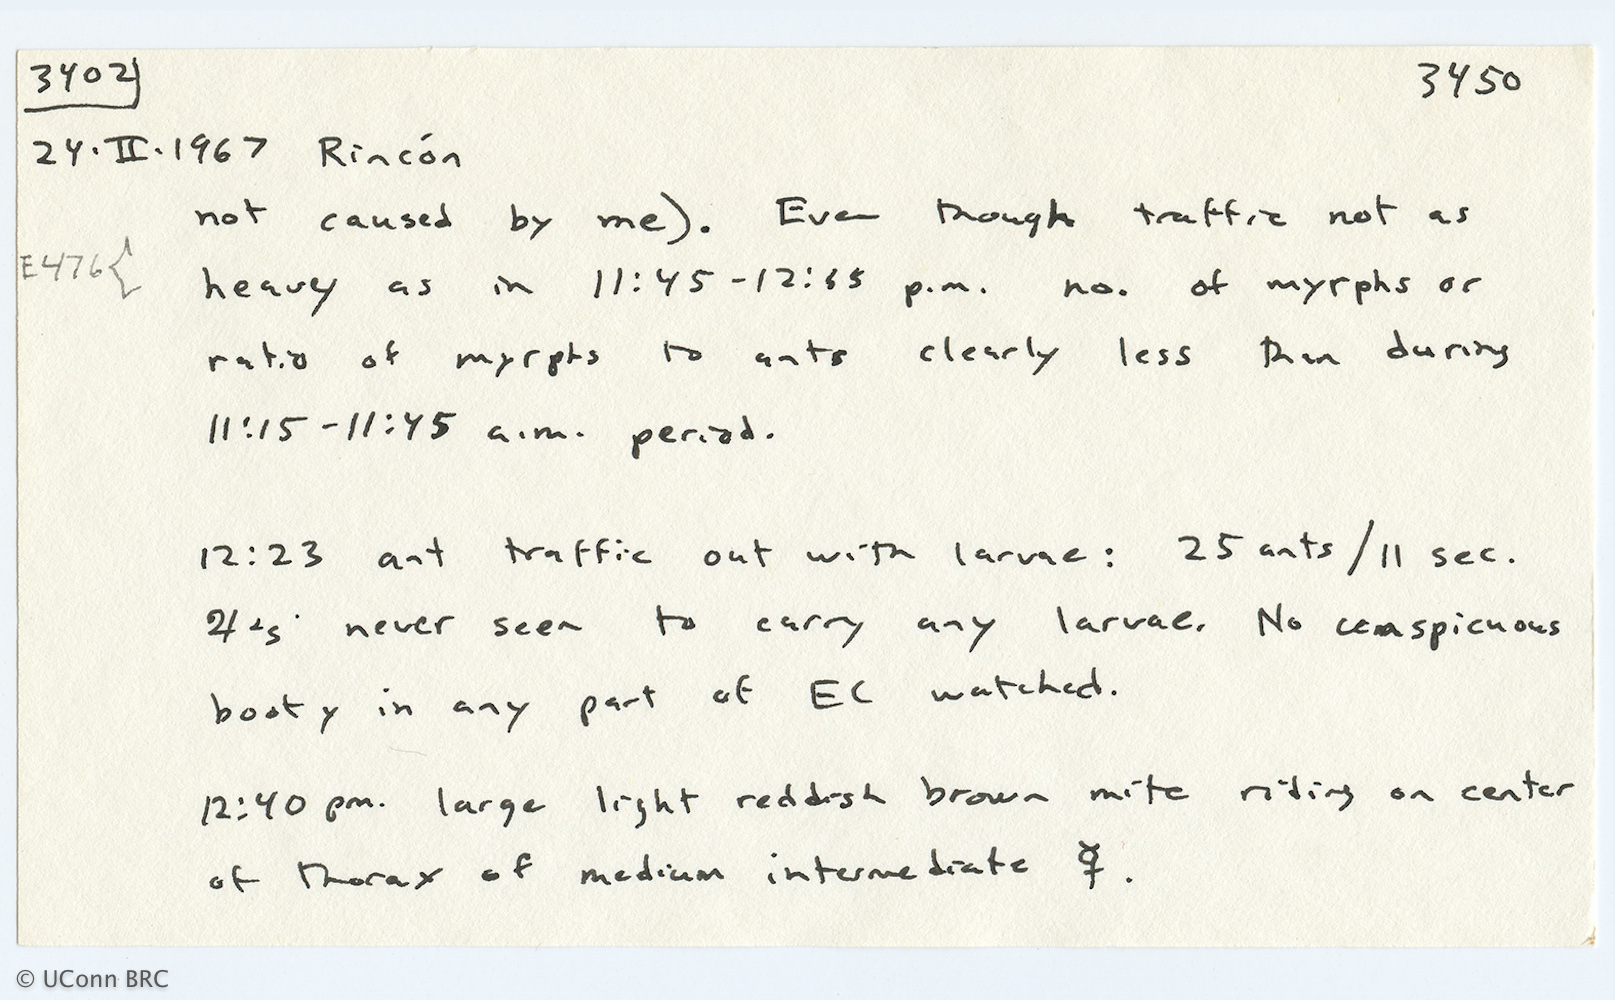 3402 3450
24.II.1967 Rincón
not caused by me). Even though traffic not as
E476{ heavy as in 11:45-12:55 p.m. no. of myrphs or
ratio of myrphs to ants clearly less than during
11:15-11:45 a.m. period.
12:23 ant traffic out with larvae: 25 ants/11 sec.
♃'s never seen to carry any larvae. No conspicuous
booty in any part of EC watched.
12:40 pm. large light reddish brown mite riding on center
of thorax of medium intermediate ☿.
© UConn BRC